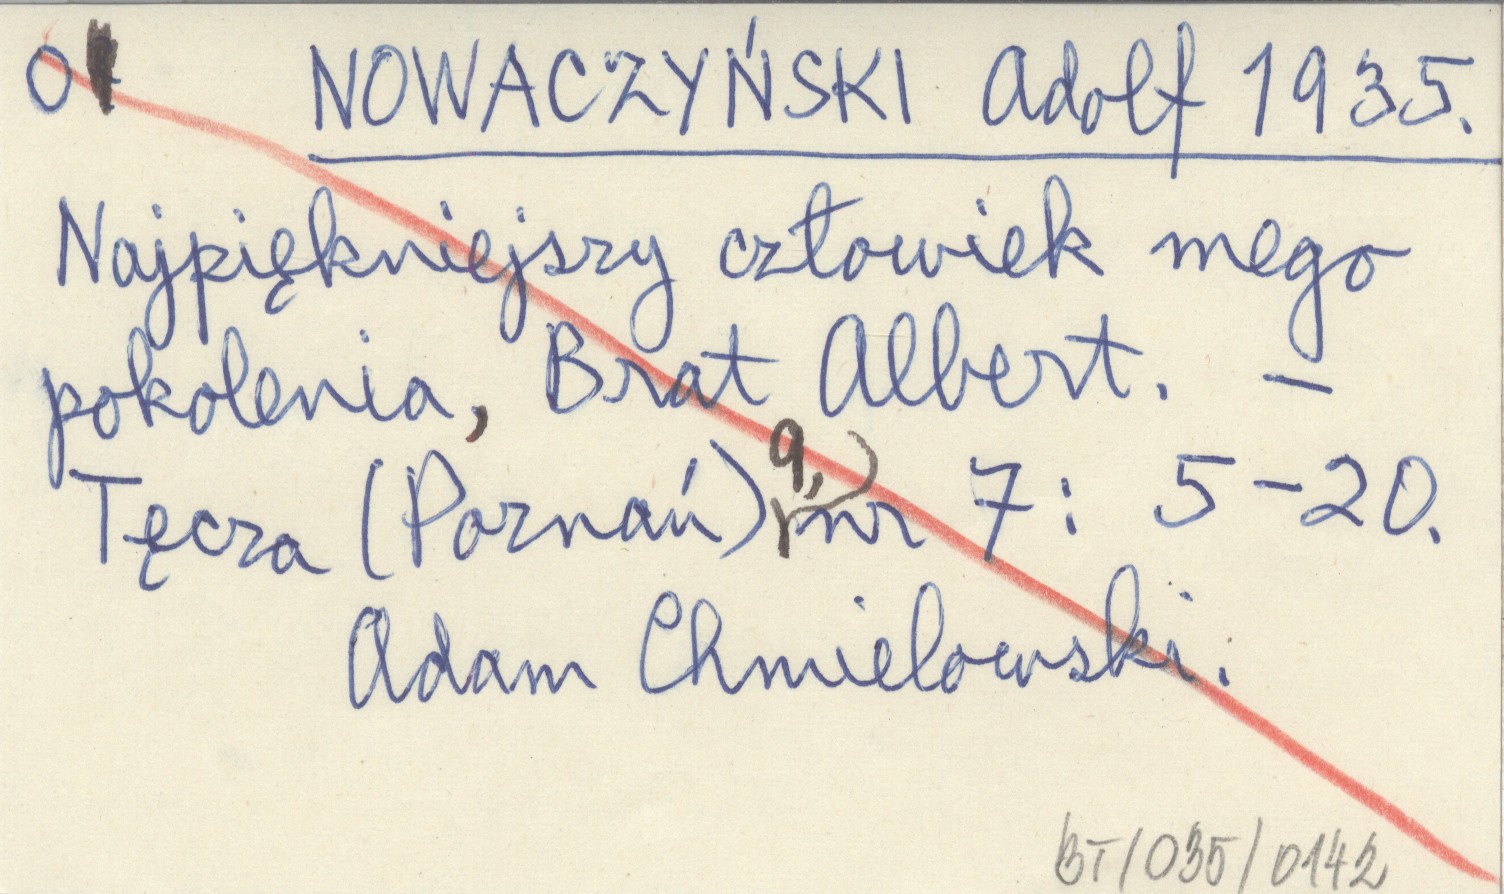 0
NOWACZYŃSKI Adolf 1935.
Najpiękniejszy człowiek mego
pokolenia, Brat Albert. –
Tęcza (Poznań) 9, nr 7: 5–20.
Adam Chmielowski.
BT/035/0142